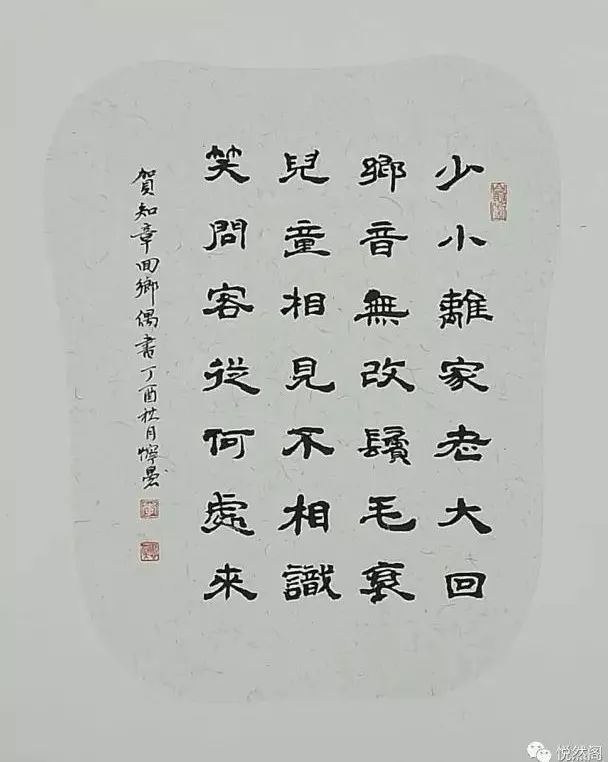 少小離家老大回
鄉音無改鬢毛衰
兒童相見不相識
笑問客從何處來
賀知章回鄉偶書丁酉秋月
悦然阁